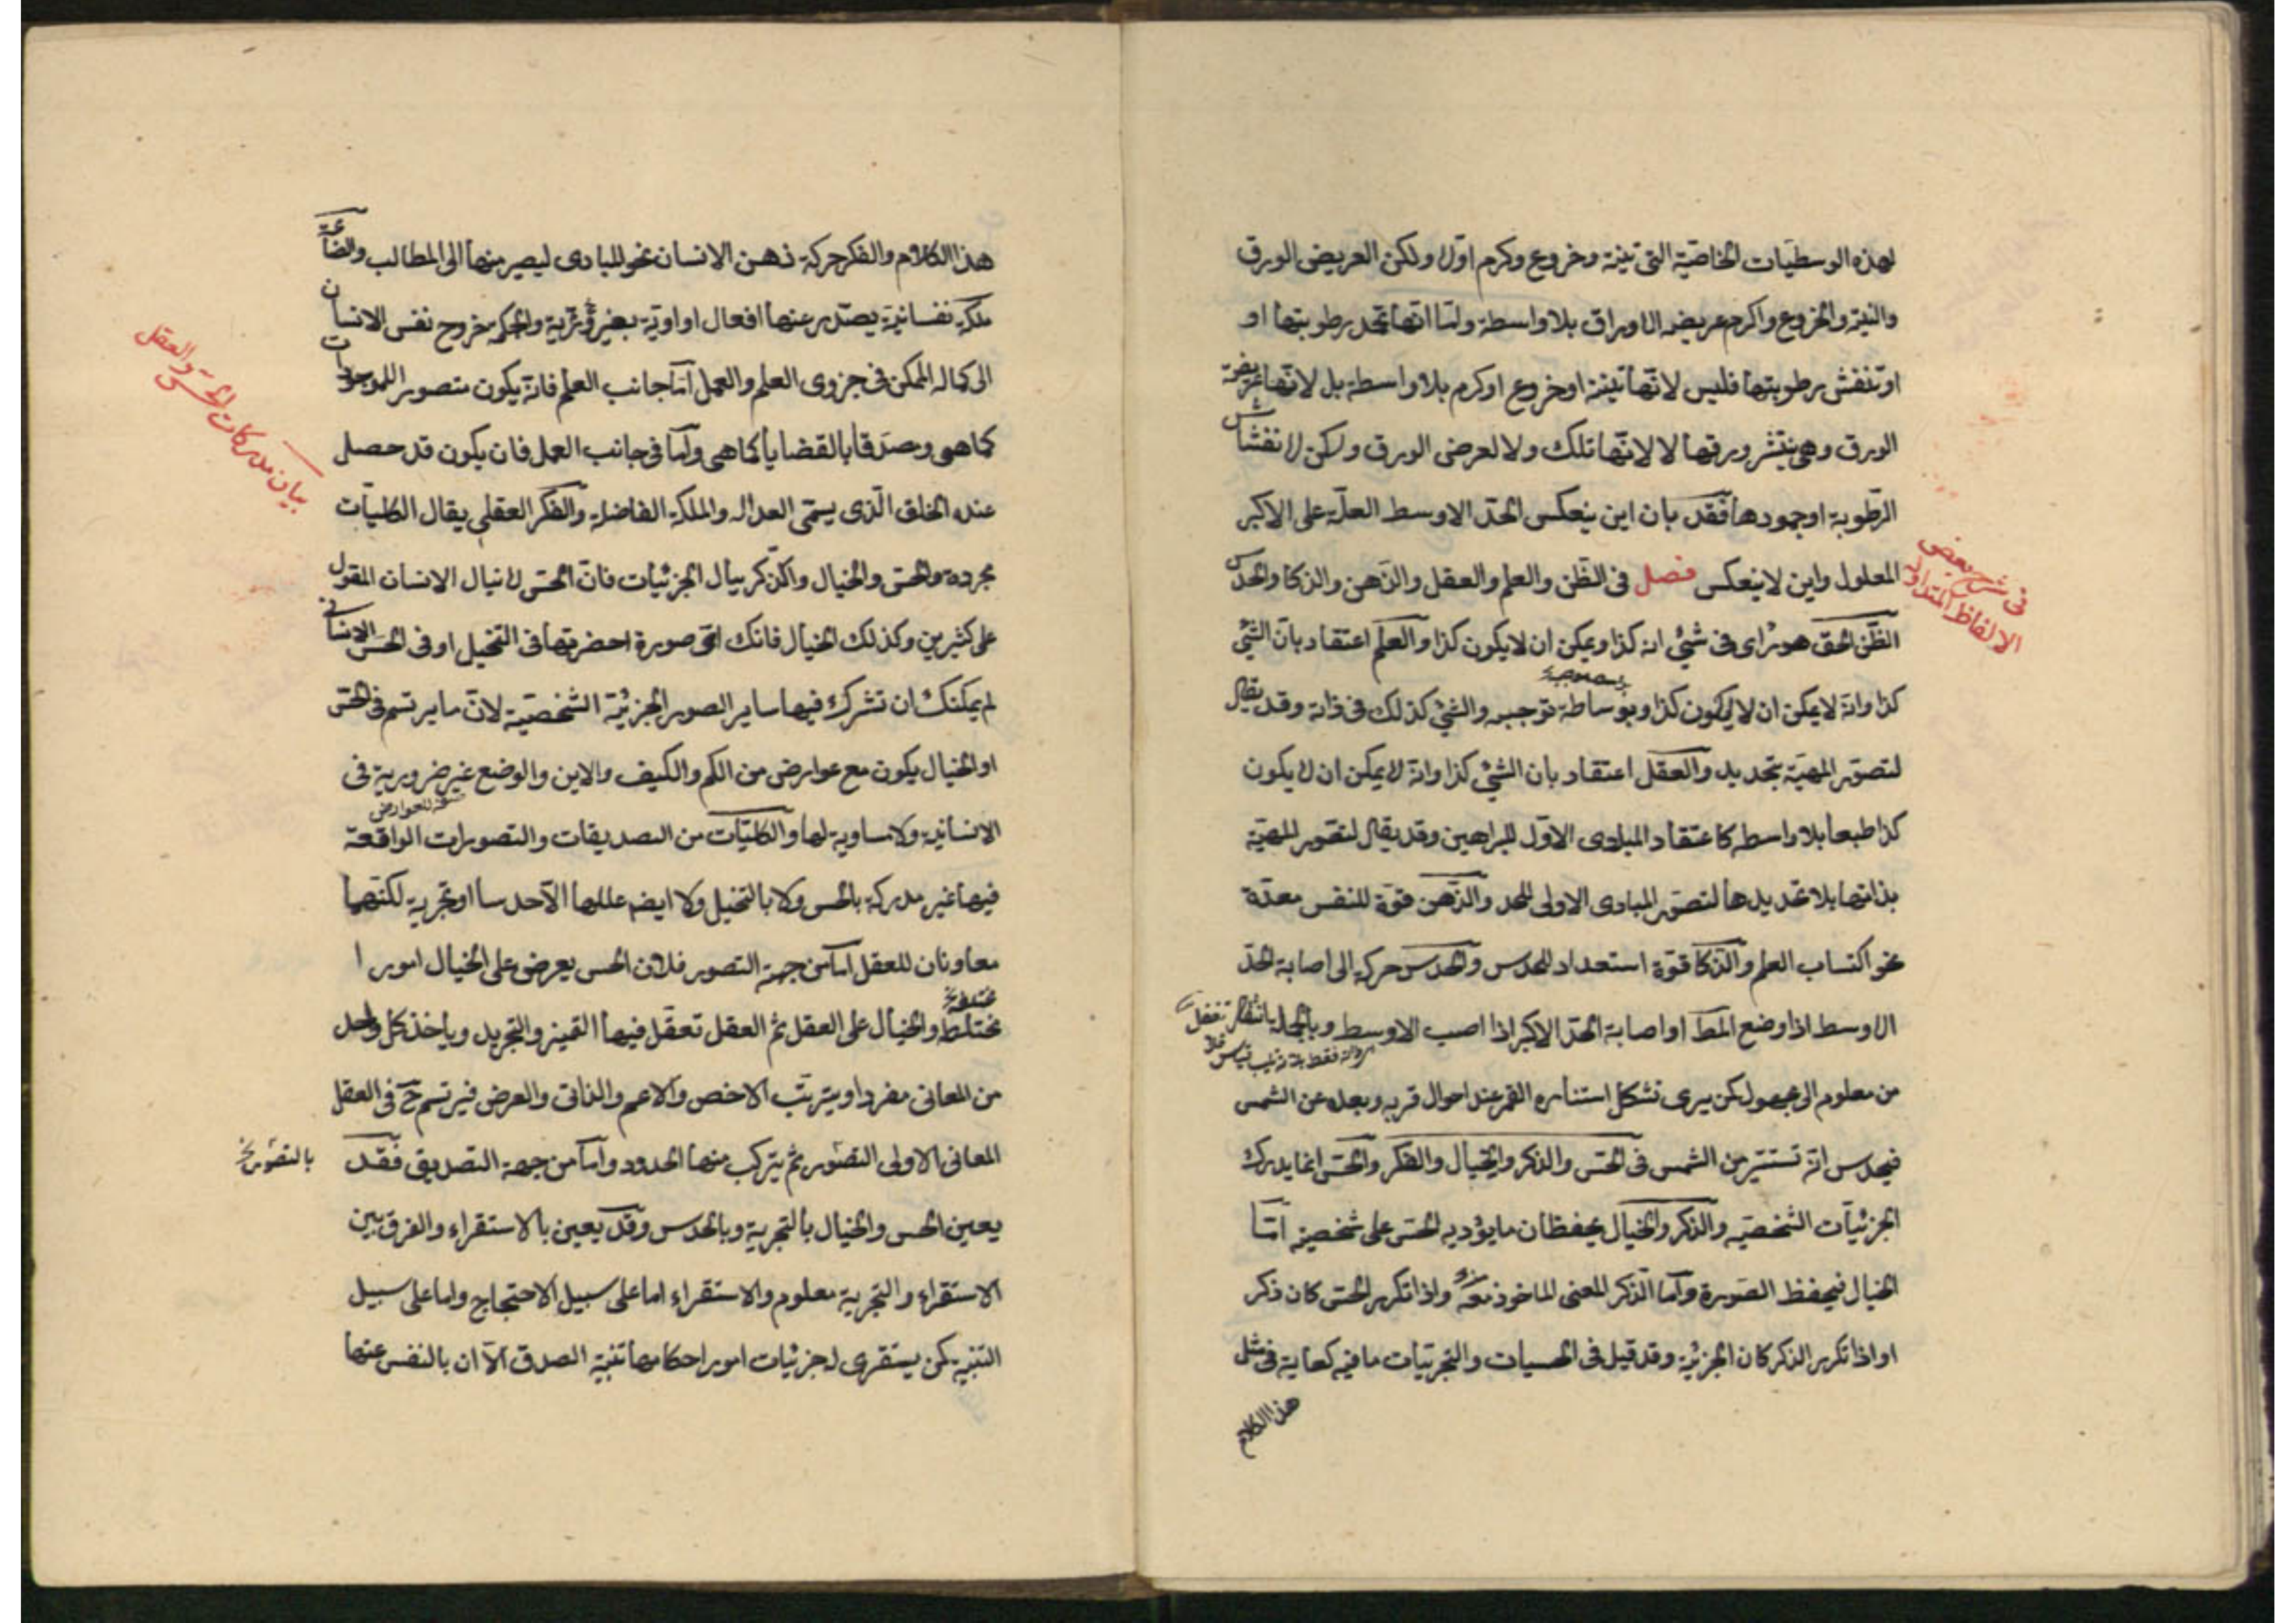 لهذه الوسطيات الخاصية التى تينة وخروع وكرم اولا ولكن العريض الورق
والتينة والخروع والكرم عريضه الاوراق بلا واسطة ولما انها تجمد رطوبتها او
او تنفش رطوبتها فليس لانها تينة او خروع او كرم بلا واسطة بل لانها عريضة
الورق وهى ينتثر ورقها لا لانها تلك ولا لعرض الورق ولكن لانفشاش
الرطوبة او جمودها فقد بان اين ينعكس الحد الاوسط العلة على الاكبر
المعلول واين لا ينعكس فصل فى الظن والعلم والعقل والذهن والذكا والحدس
فى شرح بعض
الالفاظ المتداوله
الظن الحق هو راى فى شئ انه كذا ويمكن ان لا يكون كذا والعلم اعتقاد بان الشئ
كذا وانه لا يمكن ان لا يكون كذا وبوساطة توجبه والشئ كذلك فى ذاته وقد يقال
لتصور المهية بتحديد والعقل اعتقاد بان الشئ كذا وانه لا يمكن ان لا يكون
كذا طبعا بلا واسطه كاعتقاد المبادى الاول للبراهين وقد يقال لتصور المهية
بذاتها بلا تحديدها لتصور المبادى الاولى للحد والذهن قوة للنفس معدة
نحو اكتساب العلم والذكا قوة استعداد للحدس والحدس حركة الى اصابة الحد
الاوسط اذا وضع المط او اصابة الحد الاكبر اذا اصيب الاوسط وبالجملة
من معلوم الى مجهول كمن يرى تشكل استناره القمر عند احوال قربه وبعده عن الشمس
فيحدس انه تستنير من الشمس فى الحس والذكر والخيال والفكر والحس انما يدرك
الجزئيات الشخصيه والذكر والخيال يحفظان ما يؤديه الحس على شخصيته اما
الخيال فيحفظ الصورة واما الذكر المعنى الماخوذ منه واذا تكرر الحس كان ذكر
او اذا تكرر الذكر كان الجزئية وقد قيل فى الحسيات والتجربيات ما فيه كفاية فى مثل
هذا الكلام
هذا الكلام والفكر حركة ذهن الانسان نحو المبادى ليصير منها الى المطالب والصناعة
ملكة نفسانية يصدر عنها افعال اراوية بغير روية والحكمة خروج نفس الانسان
الى كماله الممكن فى جزوى العلم والعمل اما جانب العلم فانه يكون متصورا للموجودات
كما هى ومصدقا بالقضايا كما هى واما فى جانب العمل فان يكون قد حصل
بيان مدركات الحس والعقل
عنده الخلق الذى يسمى العداله والملكة الفاضلة والفكر العقلى يقال الكليات
مجردة والحس والخيال والذكر ينال الجزئيات فان الحس لا ينال الانسان المقول
على كثيرين وكذلك الخيال فانك اى صورة احضرتها فى التخيل او فى الحس الانسانى
لم يمكنك ان تشرك فيها ساير الصور الجزئية الشخصية لان ما يرتسم فى الحس
او الخيال يكون مع عوارض من الكم والكيف والاين والوضع غير ضرورية فى
الانسانية ولا مساوية لها والكليات من التصديقات والتصورات الواقعة
فيها غير مدركة بالحس ولا بالتخيل ولا ايضه عللها الا حدسا او تجربة لكنهما
معاونان للعقل اما من جهة التصور فلان الحس يعرض على الخيال امورا
مختلطة والخيال على العقل ثم العقل تعقل فيها التميز والتجريد وياخذ كل واحد
من المعانى مفردا ويترتب الاخص والاعم والذاتى والعرض فيرتسم ح فى العقل
المعانى الاولى التصور ثم يتركب منها الحدود واما من جهة التصديق فقد
يعين الحس والخيال بالتجربة وبالحدس وقد يعين بالاستقراء والفرق بين
الاستقراء والتجربة معلوم والاستقراء اما على سبيل الاحتجاج واما على سبيل
التنبيه كمن يستقرى لجزئيات امور احكامها تنبة الصدق الا ان بالنفس عنها